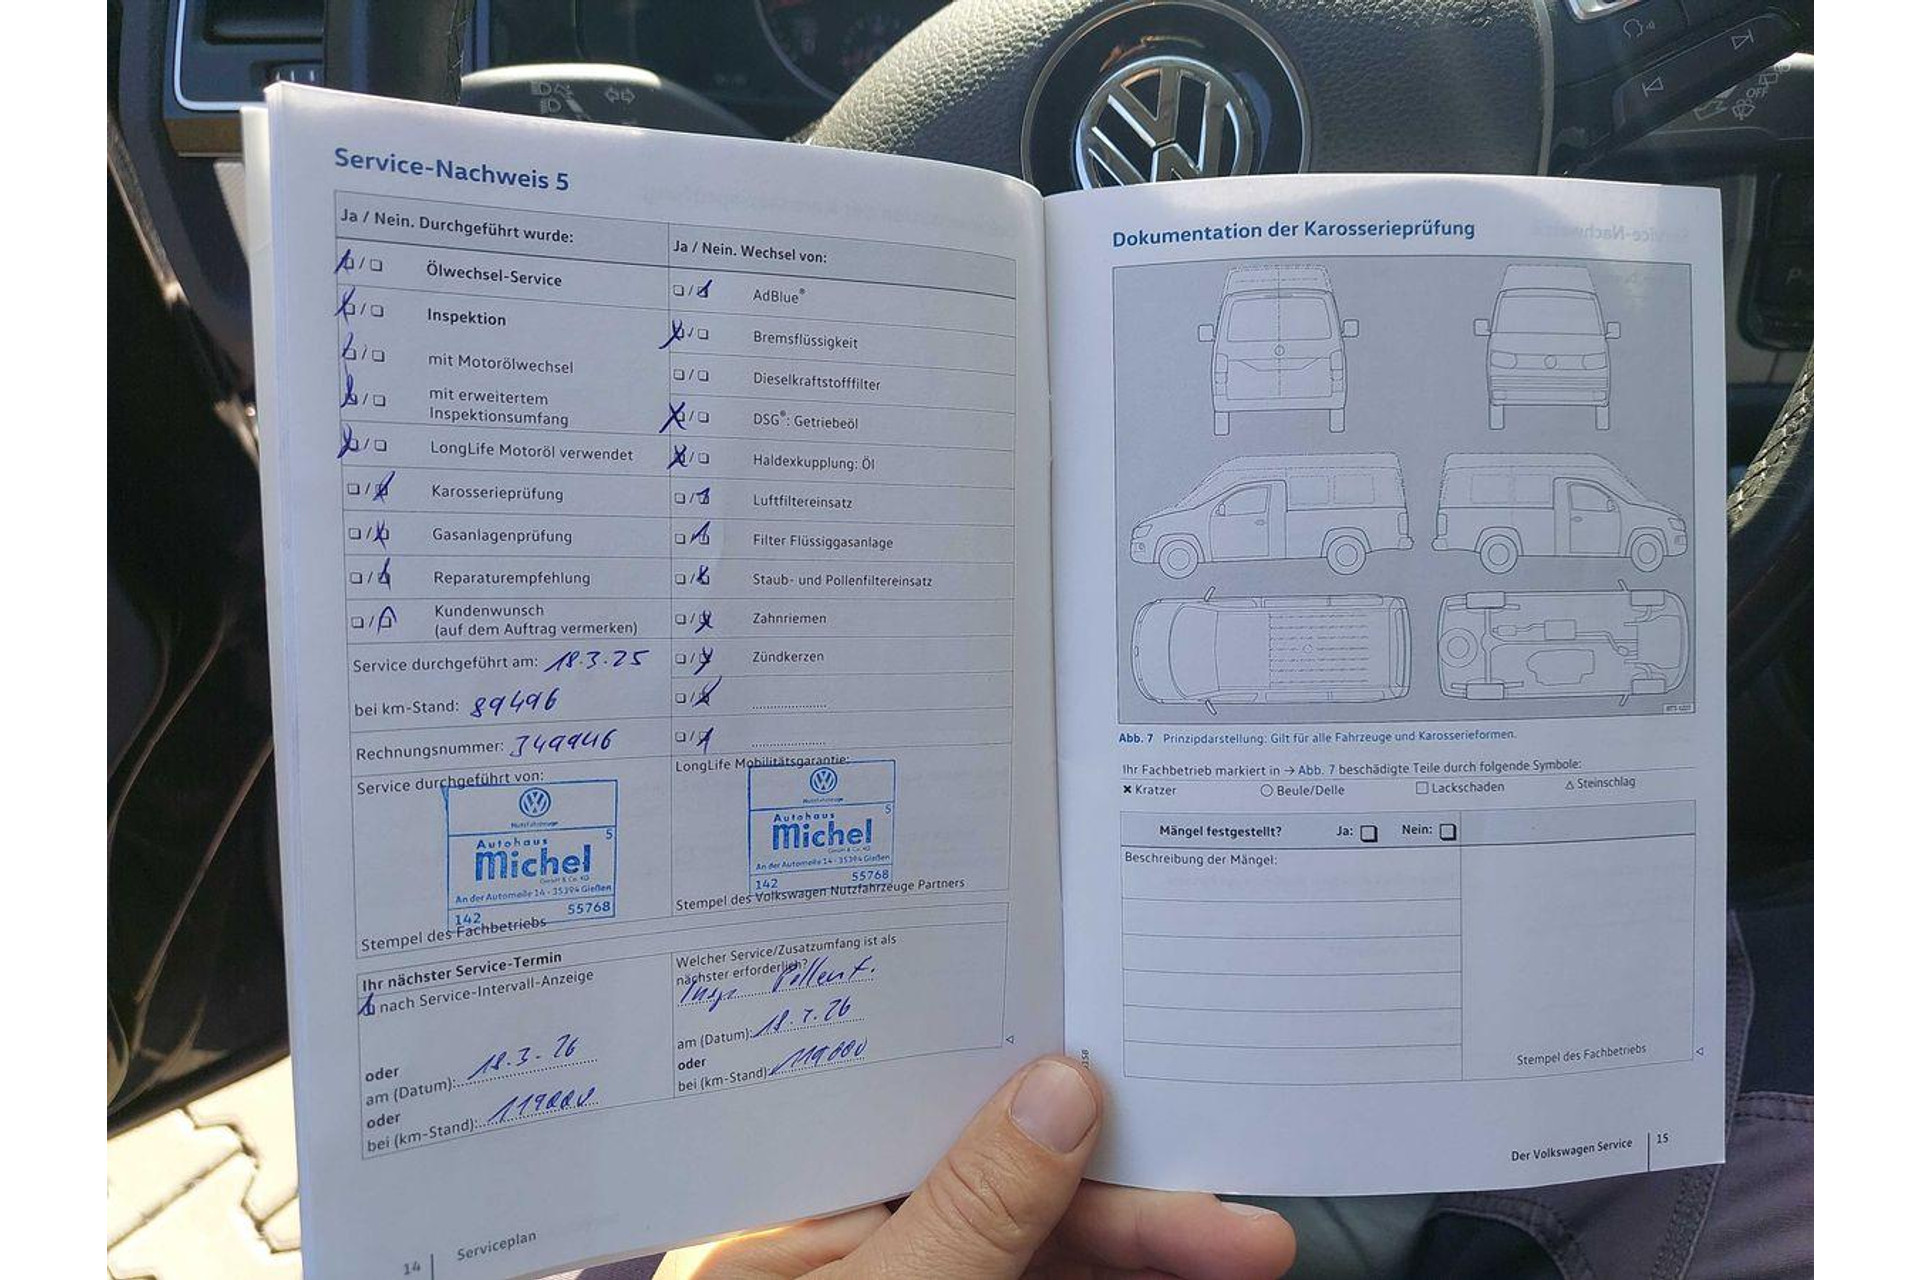 Service-Nachweis 5
Ja / Nein. Durchgeführt wurde:
Ölwechsel-Service
Inspektion
mit Motorölwechsel
mit erweitertem
Inspektionsumfang
LongLife Motoröl verwendet
Karosserieprüfung
Gasanlagenprüfung
Reparaturempfehlung
Kundenwunsch
(auf dem Auftrag vermerken)
Service durchgeführt am: 18.3.25
bei km-Stand: 89496
Rechnungsnummer: 349946
Service durchgeführt von:
Nutzfahrzeuge
5
Autohaus
Michel
GmbH & Co. KG
An der Automeile 14 - 35394 Gießen
142 55768
Stempel des Fachbetriebs
Ja / Nein. Wechsel von:
AdBlue®
Bremsflüssigkeit
Dieselkraftstofffilter
DSG®: Getriebeöl
Haldexkupplung: Öl
Luftfiltereinsatz
Filter Flüssiggasanlage
Staub- und Pollenfiltereinsatz
Zahnriemen
Zündkerzen
LongLife Mobilitätsgarantie:
Nutzfahrzeuge
5
Autohaus
Michel
GmbH & Co. KG
An der Automeile 14 - 35394 Gießen
142 55768
Stempel des Volkswagen Nutzfahrzeuge Partners
Ihr nächster Service-Termin
nach Service-Intervall-Anzeige
oder
am (Datum): 18.3.26
oder
bei (km-Stand): 119000
Welcher Service/Zusatzumfang ist als
nächster erforderlich?
Insp. Pollenf.
am (Datum): 18.3.26
oder
bei (km-Stand): 119000
14 Serviceplan
Dokumentation der Karosserieprüfung
Abb. 7 Prinzipdarstellung: Gilt für alle Fahrzeuge und Karosserieformen.
Ihr Fachbetrieb markiert in → Abb. 7 beschädigte Teile durch folgende Symbole:
× Kratzer ○ Beule/Delle □ Lackschaden △ Steinschlag
Mängel festgestellt? Ja: Nein:
Beschreibung der Mängel:
Stempel des Fachbetriebs
Der Volkswagen Service 15